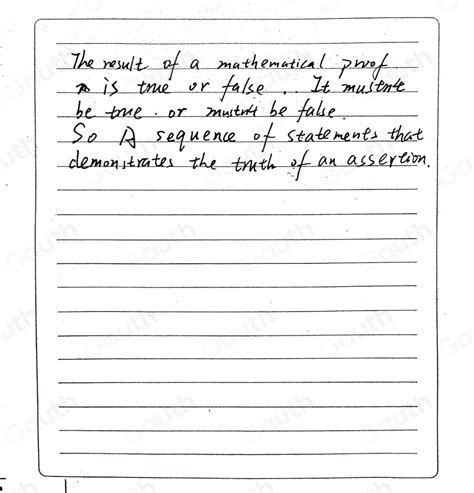 The result of a mathematical proof
is true or false .. It mustn't
be true . or mustn't be false.
So A sequence of statements that
demonstrates the truth of an assertion.